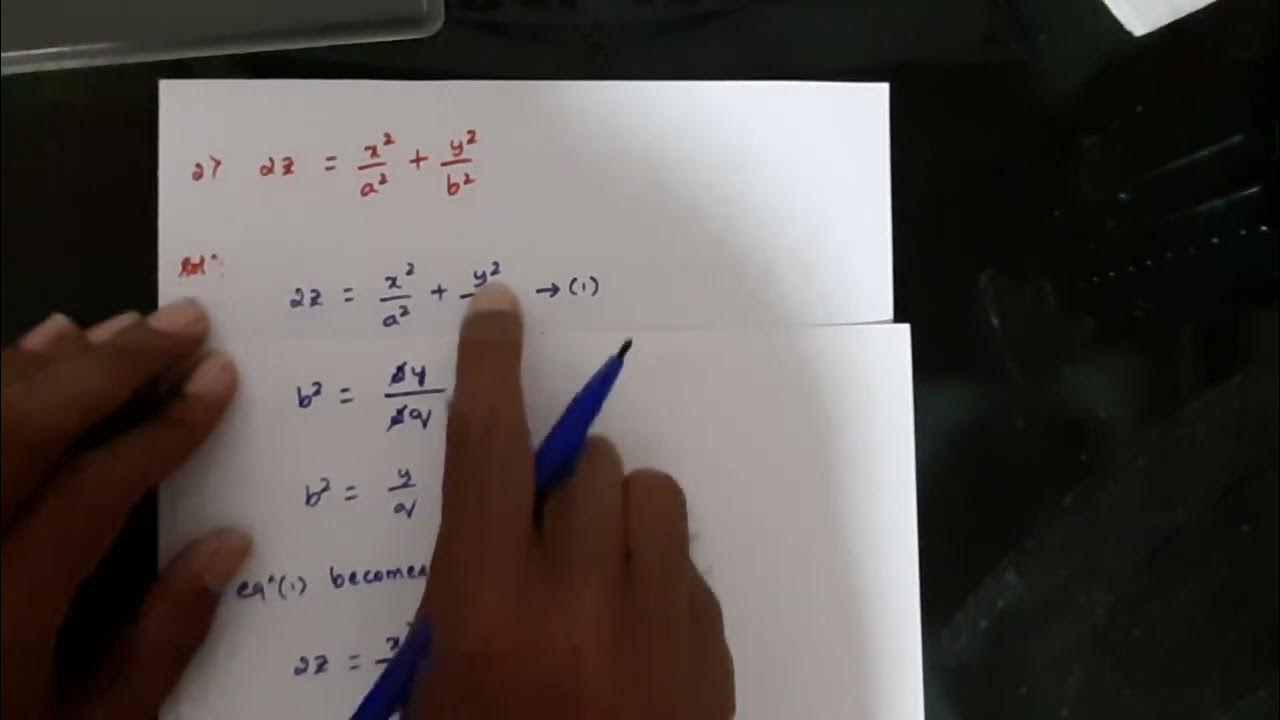 2> 2z = x²/a² + y²/b²
Solⁿ:
2z = x²/a² + y² → (1)
b² = 2y/2q
b² = y/q
eqⁿ(1) becomes
2z = x